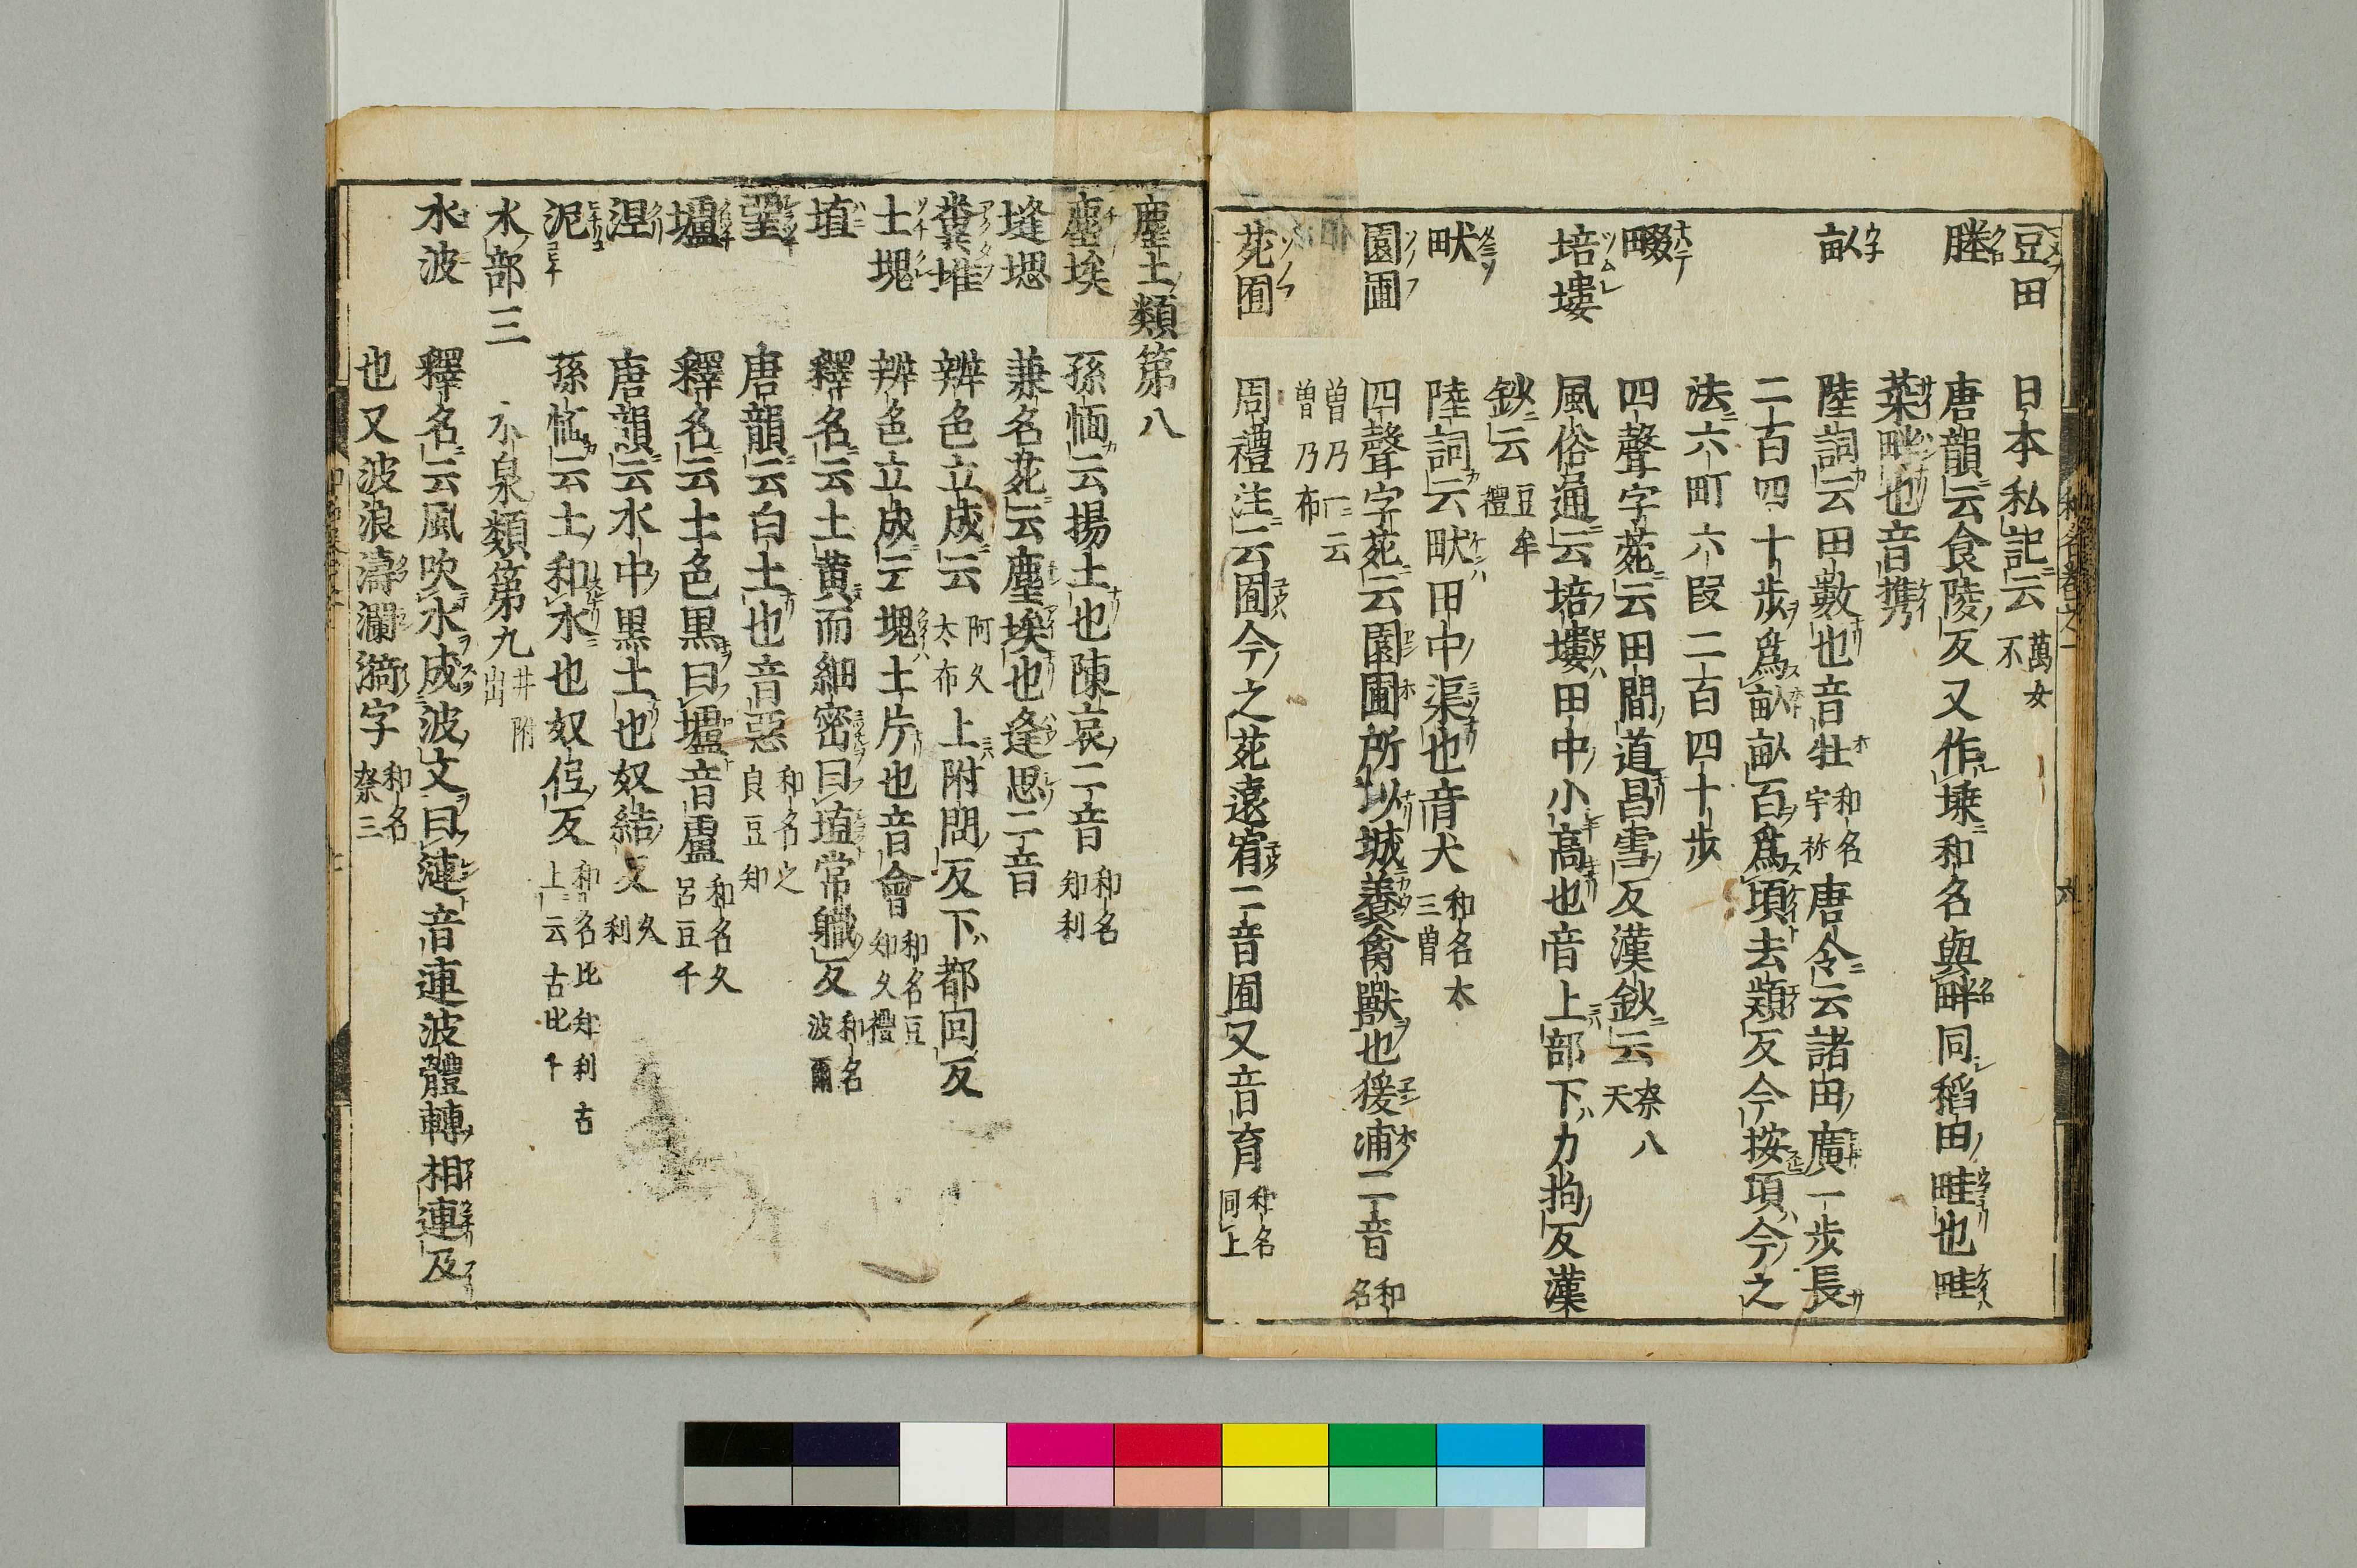 豆田 日本私記云萬女不
塍 唐韻云食陵反又作堘和名與畔同稻田畦也畦
菜畔也音携
畝 陸詞云田數也音牡和名宇祢唐令云諸田廣一步長
二百四十步爲畝畝百爲頃去潁反今按頃今之
法六町六段二百四十步
畷 四聲字苑云田間道昌雪反漢鈔云奈八天
培塿 風俗通云培塿田中小高也音上部下力拘反漢
鈔云豆牟禮
畎 陸詞云畎田中渠也音犬和名太三曽
園圃 四聲字苑云園圃所以城養禽獸也猨浦二音和名
曽乃一云曽乃布
苑囿 周禮注云囿今之苑遠宥二音囿又音育和名同上
塵土類第八
塵埃 孫愐云揚土也陳哀二音和名知利
塳㙠 兼名苑云塵埃也逢思二音
糞堆 辨色立成云阿久太布上附問反下都回反
土塊 辨色立成云塊土片也音會和名豆知久禮
埴 釋名云土黄而細密曰埴常職反和名波爾
堊 唐韻云白土也音惡和名之良豆知
壚 釋名云土色黒曰壚音盧和名久呂豆千
涅 唐韻云水中黒土也奴結反久利
泥 孫愐云土和水也奴低反和名比知利古上云古比千
水部三 水泉類第九井附出
水波 釋名云風吹水成波文曰漣音連波體轉相連及
也又波浪濤瀾漪字和名奈三